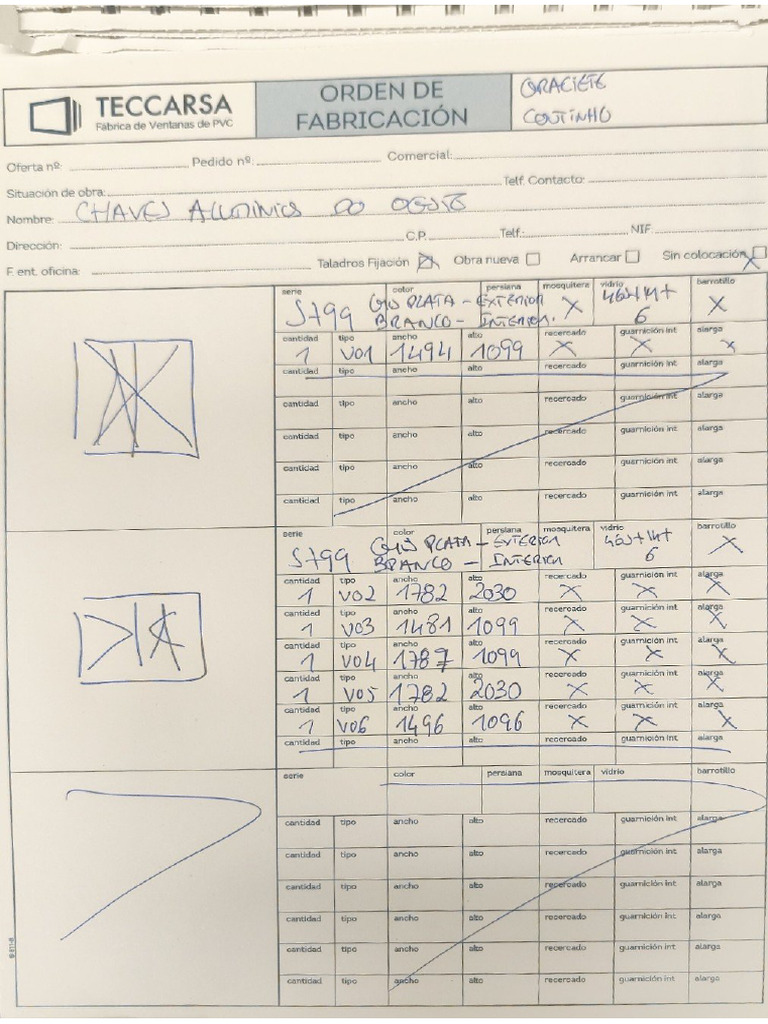 TECCARSA
Fábrica de Ventanas de PVC
ORDEN DE
FABRICACIÓN
GRACIETE
COUTINHO
Oferta nº: Pedido nº: Comercial:
Situación de obra: Telf. Contacto:
Nombre: CHAVES ALUMINIOS DO
Dirección: C.P. Telf.: NIF:
F. ent. oficina: Taladros Fijación Obra nueva Arrancar Sin colocación X
serie color persiana mosquitera vidrio barrotillo
S799 GRIS PLATA - EXTERIOR X X
BRANCO - INTERIOR. 6
cantidad tipo ancho alto recercado guarnición int alarga
1 V01 1494 1099 X X X
cantidad tipo ancho alto recercado guarnición int alarga
cantidad tipo ancho alto recercado guarnición int alarga
cantidad tipo ancho alto recercado guarnición int alarga
cantidad tipo ancho alto recercado guarnición int alarga
cantidad tipo ancho alto recercado guarnición int alarga
serie color persiana mosquitera vidrio barrotillo
S799 GRIS PLATA - EXTERIOR X
BRANCO - INTERIOR 6
cantidad tipo ancho alto recercado guarnición int alarga
1 V02 1782 2030 X X X
cantidad tipo ancho alto recercado guarnición int alarga
1 V03 1481 1099 X X X
cantidad tipo ancho alto recercado guarnición int alarga
1 V04 1787 1099 X X X
cantidad tipo ancho alto recercado guarnición int alarga
1 V05 1782 2030 X X X
cantidad tipo ancho alto recercado guarnición int alarga
1 V06 1496 1096 X X X
cantidad tipo ancho alto recercado guarnición int alarga
serie color persiana mosquitera vidrio barrotillo
cantidad tipo ancho alto recercado guarnición int alarga
cantidad tipo ancho alto recercado guarnición int alarga
cantidad tipo ancho alto recercado guarnición int alarga
cantidad tipo ancho alto recercado guarnición int alarga
cantidad tipo ancho alto recercado guarnición int alarga
cantidad tipo ancho alto recercado guarnición int alarga